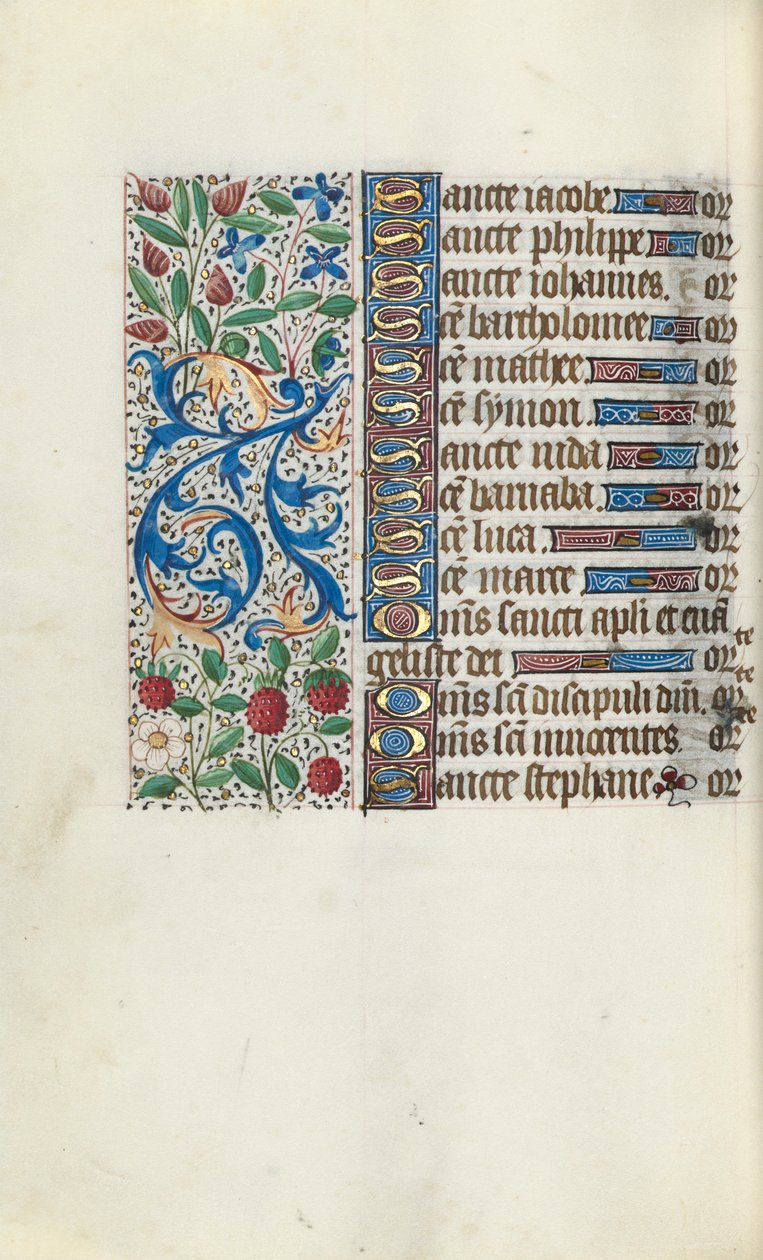 Sancte iacobe. or
Sancte philippe or
Sancte iohannes. or
Scẽ bartholomee or
Scẽ mathee. or
Scẽ symon. or
Sancte iuda or
Scẽ barnaba. or
Scẽ luca. or
Scẽ marce or
Om̃s sancti apli et euã
geliste dei or
te
Om̃s sc̃i discipuli dñi. or
te
Om̃s sc̃i innocentes. or
te
Sancte stephane or